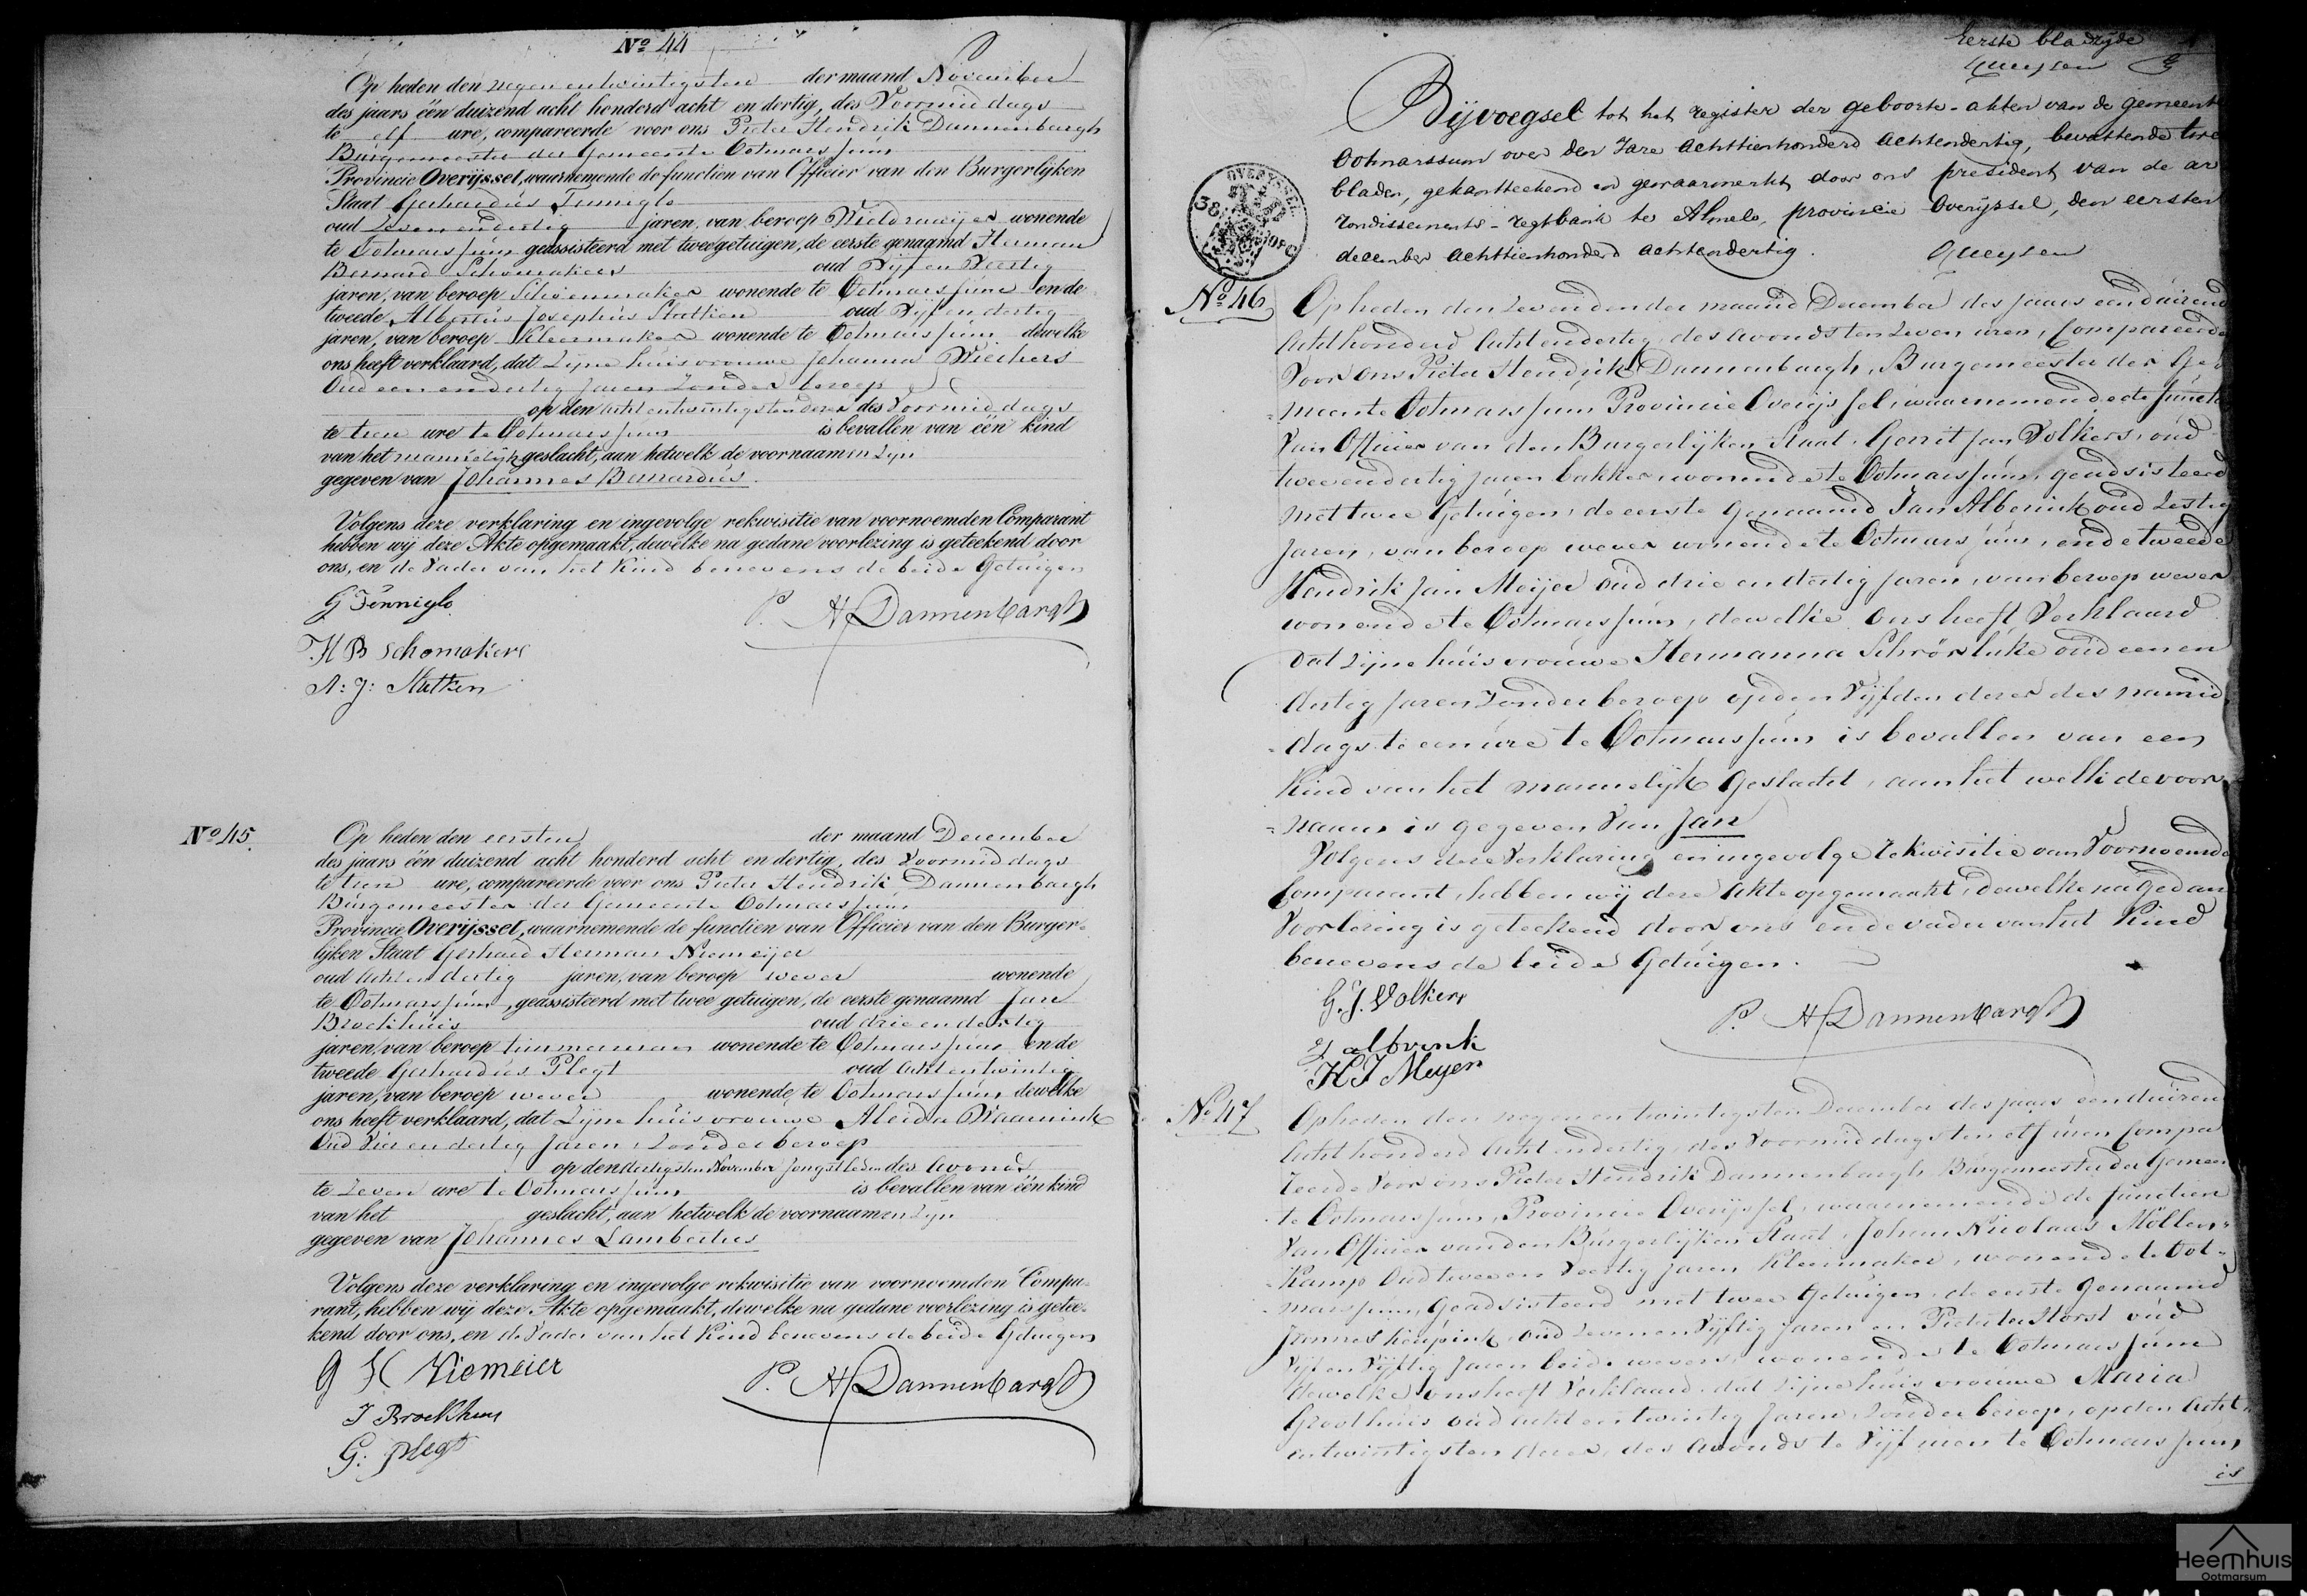 No 44
Op heden den negenentwintigsten der maand November
des jaars één duizend acht honderd acht en dertig, des Voormiddags
te elf ure, compareerde voor ons Pieter Hendrik Dannenbargh
Burgemeester der Gemeente Ootmarssum
Provincie Overijssel, waarnemende de functien van Officier van den Burgerlijken
Staat Gerhardus Tinniglo
oud Zevenendertig jaren, van beroep wonende
te Ootmarssum geassisteerd met twee getuigen, de eerste genaamd Herman
Bernard Schomakers oud Vijf en Veertig
jaren, van beroep Schoenmaker wonende te Ootmarssum en de
tweede Albertus Josephus oud Vijf en dertig
jaren, van beroep Kleermaker wonende te Ootmarssum dewelke
ons heeft verklaard, dat Zijne huisvrouwe Johanna Wiechers
Oud eenendertig Jaren Zonder beroep
op den achtentwintigsten dezer des Voormiddags
te tien ure te Ootmarssum is bevallen van één kind
van het mannelijk geslacht, aan hetwelk de voornaamen Zijn
gegeven van Johannes Bernardus.
Volgens deze verklaring en ingevolge rekwisitie van voornoemden Comparant
hebben wij deze Akte opgemaakt, dewelke na gedane voorlezing is geteekend door
ons, en de Vader van het Kind benevens de beide Getuigen
G Tinniglo
P. H Dannenbargh
H B Schomakers
A: J:
No 45.
Op heden den eersten der maand December
des jaars één duizend acht honderd acht en dertig, des Voormiddags
te tien ure, compareerde voor ons Pieter Hendrik Dannenbargh
Burgemeester der Gemeente Ootmarssum
Provincie Overijssel, waarnemende de functien van Officier van den Burger-
lijken Staat Gerhard Herman Niemeijer
oud Achtendertig jaren, van beroep wever wonende
te Ootmarssum, geassisteerd met twee getuigen, de eerste genaamd Jan
Broekhuis oud drie en dertig
jaren, van beroep timmerman wonende te Ootmarssum en de
tweede Gerhardus Plegt oud Achtentwintig
jaren, van beroep wever wonende te Ootmarssum dewelke
ons heeft verklaard, dat Zijne huisvrouwe Aleida
Oud Vier en dertig Jaren, Zonder beroep
op den dertigsten November Jongstleden des Avonds
te Zeven ure te Ootmarssum is bevallen van één kind
van het geslacht, aan hetwelk de voornaamen Zijn
gegeven van Johannes Lambertus
Volgens deze verklaring en ingevolge rekwisitie van voornoemden Compa-
rant, hebben wij deze Akte opgemaakt, dewelke na gedane voorlezing is getee-
kend door ons, en de Vader van het Kind benevens de beide Getuigen
G H Niemeier
P. H Dannenbargh
J Broekhuis
G: Plegt
Eerste bladzijde
Queysen
Bijvoegsel tot het register der geboorte-akten van de gemeente
Ootmarssum over den Jare Achttienhonderd Achtendertig, bevattende twee
bladen, gekantteekend en gewaarmerkt door ons president van de ar
rondissements-regtbank te Almelo, provincie Overijssel, den eersten
december Achttienhonderd Achtendertig.
Queysen
OVERYSSEL
38
No 46
Op heden den Zevenden der maand December des Jaars een duizend
Achthonderd Achtendertig, des avonds ten Zeven uren, Compareerde
Voor ons Pieter Hendrik Dannenbargh, Burgemeester der Ge-
meente Ootmarssum Provincie Overijssel, waarnemende de functi
Van Officier van den Burgerlijken Staat, Gerrit Jan Volkers, oud
tweeendertig jaren bakker, wonende te Ootmarssum, geadsisteerd
met twee Getuigen, de eerste Genaamd Jan Alberink oud Zestig
Jaren, van beroep wever wonende te Ootmarssum, en de tweede
Hendrik Jan Meijer oud drie en dertig Jaren, van beroep wever
wonende te Ootmarssum, dewelke ons heeft Verklaard
dat Zijne huisvrouwe Hermanna oud een en
dertig Jaren Zonder beroep op den Vijfden dezer des namid
-dags te een ure te Ootmarssum is bevallen van een
Kind van het mannelijk Geslacht, aan het welk de voor
-naam is gegeven Van Jan
Volgens deze Verklaring en ingevolge rekwisitie van Voornoemde
Comparant, hebben wij deze Akte opgemaakt, dewelke na gedane
Voorlezing is geteekend door ons en de vader van het Kind
benevens de beide Getuigen.
G. J. Volkers
P. H Dannenbargh
J alberink
H J Meyer
No 47
Op heden den negenentwintigsten December des jaars een duizend
Achthonderd Achtendertig, des Voormiddags ten elf uren Compa
reerde Voor ons Pieter Hendrik Dannenbargh Burgemeester der Gemeen
te Ootmarssum, Provincie Overijssel, waarnemende de functien
Van Officier van den Burgerlijken Staat, Johan Nicolaas Möllen-
Kamp Oud tweeen Veertig Jaren Kleermaker, wonende te Oot-
marssum, Geadsisteerd met twee Getuigen, de eerste Genaamd
Jannes oud Zevenen Vijftig Jaren en Pieter ter Horst oud
Vijfen Vijftig Jaren beide wevers, wonende te Ootmarssum
dewelke ons heeft Verklaard, dat Zijne huisvrouwe Maria
Groothuis oud Achtentwintig Jaren, Zonder beroep, op den Acht-
entwintigsten dezer, des Avonds te Vijf uren te Ootmarssum
is
Heemhuis
Ootmarsum